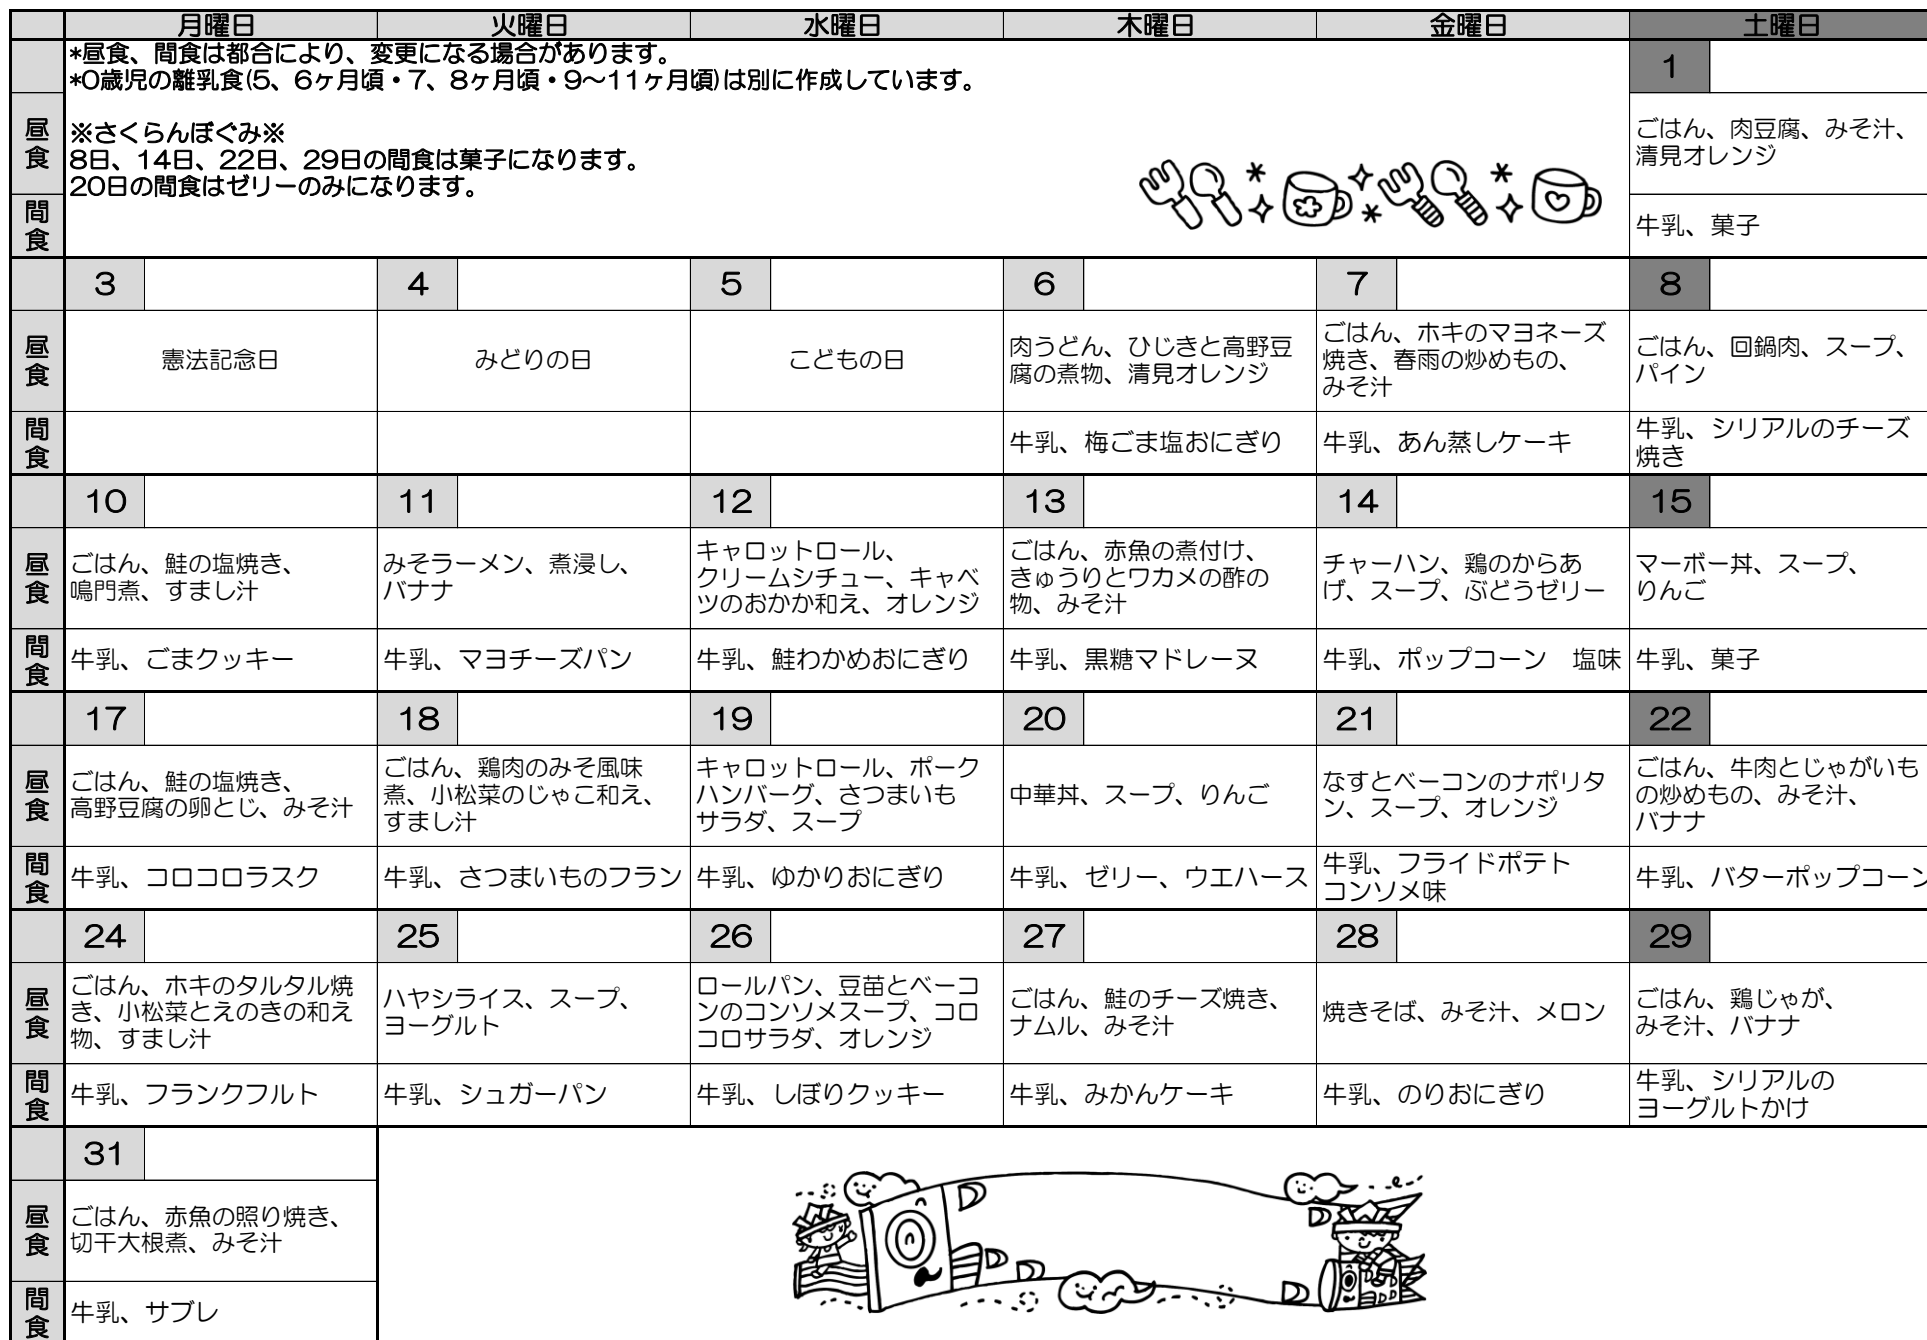 月曜日 火曜日 水曜日 木曜日 金曜日 土曜日
*昼食、間食は都合により、変更になる場合があります。
*0歳児の離乳食(5、6ヶ月頃・7、8ヶ月頃・9～11ヶ月頃)は別に作成しています。
※さくらんぼぐみ※
8日、14日、22日、29日の間食は菓子になります。
20日の間食はゼリーのみになります。
1
昼食
ごはん、肉豆腐、みそ汁、
清見オレンジ
間食
牛乳、菓子
3 4 5 6 7 8
昼食
憲法記念日
みどりの日
こどもの日
肉うどん、ひじきと高野豆
腐の煮物、清見オレンジ
ごはん、ホキのマヨネーズ
焼き、春雨の炒めもの、
みそ汁
ごはん、回鍋肉、スープ、
パイン
間食
牛乳、梅ごま塩おにぎり
牛乳、あん蒸しケーキ
牛乳、シリアルのチーズ
焼き
10 11 12 13 14 15
昼食
ごはん、鮭の塩焼き、
鳴門煮、すまし汁
みそラーメン、煮浸し、
バナナ
キャロットロール、
クリームシチュー、キャベ
ツのおかか和え、オレンジ
ごはん、赤魚の煮付け、
きゅうりとワカメの酢の
物、みそ汁
チャーハン、鶏のからあ
げ、スープ、ぶどうゼリー
マーボー丼、スープ、
りんご
間食
牛乳、ごまクッキー
牛乳、マヨチーズパン
牛乳、鮭わかめおにぎり
牛乳、黒糖マドレーヌ
牛乳、ポップコーン　塩味
牛乳、菓子
17 18 19 20 21 22
昼食
ごはん、鮭の塩焼き、
高野豆腐の卵とじ、みそ汁
ごはん、鶏肉のみそ風味
煮、小松菜のじゃこ和え、
すまし汁
キャロットロール、ポーク
ハンバーグ、さつまいも
サラダ、スープ
中華丼、スープ、りんご
なすとベーコンのナポリタ
ン、スープ、オレンジ
ごはん、牛肉とじゃがいも
の炒めもの、みそ汁、
バナナ
間食
牛乳、コロコロラスク
牛乳、さつまいものフラン
牛乳、ゆかりおにぎり
牛乳、ゼリー、ウエハース
牛乳、フライドポテト
コンソメ味
牛乳、バターポップコーン
24 25 26 27 28 29
昼食
ごはん、ホキのタルタル焼
き、小松菜とえのきの和え
物、すまし汁
ハヤシライス、スープ、
ヨーグルト
ロールパン、豆苗とベーコ
ンのコンソメスープ、コロ
コロサラダ、オレンジ
ごはん、鮭のチーズ焼き、
ナムル、みそ汁
焼きそば、みそ汁、メロン
ごはん、鶏じゃが、
みそ汁、バナナ
間食
牛乳、フランクフルト
牛乳、シュガーパン
牛乳、しぼりクッキー
牛乳、みかんケーキ
牛乳、のりおにぎり
牛乳、シリアルの
ヨーグルトかけ
31
昼食
ごはん、赤魚の照り焼き、
切干大根煮、みそ汁
間食
牛乳、サブレ